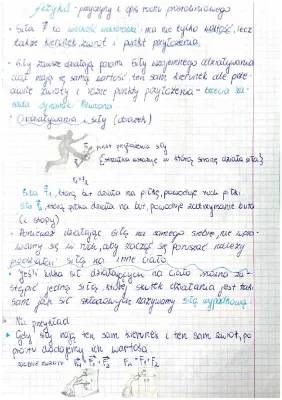 fizyka - przyczyny i opis ruchu prostoliniowego
• Siła F to wielkość wektorowa - ma nie tylko wartość, lecz
także kierunek zwrot i punkt przyłożenia.
• Siły zawsze działają parami. Siły wzajemnego oddziaływania
ciał mają tę samą wartość, ten sam kierunek ale prze-
ciwne zwroty i różne punkty przyłożenia - trzecia za-
sada dynamiki Newtona
• Oddziaływania i siły (obrazek)
punkt przyłożenia siły
(strzałka wskazuje w którą stronę działa siła)
F₁ = F₂
Siła F₁, którą but działa na piłkę, powoduje ruch piłki
siła F₂, którą piłka działa na but, powoduje zatrzymanie buta
(i stopy)
• Ponieważ działając siłą na samego siebie, nie wpra-
wiamy się w ruch, aby zacząć się poruszać należy
siłą na inne ciało
• Jeśli kilka sił działających na ciało można za-
stąpić jedną siłą, której skutek działania jest taki
sam jak sił składowych nazywamy siłą wypadkową
Na przykład
• Gdy siły mają ten sam kierunek i ten sam zwrot, po
prostu dodajemy ich wartości